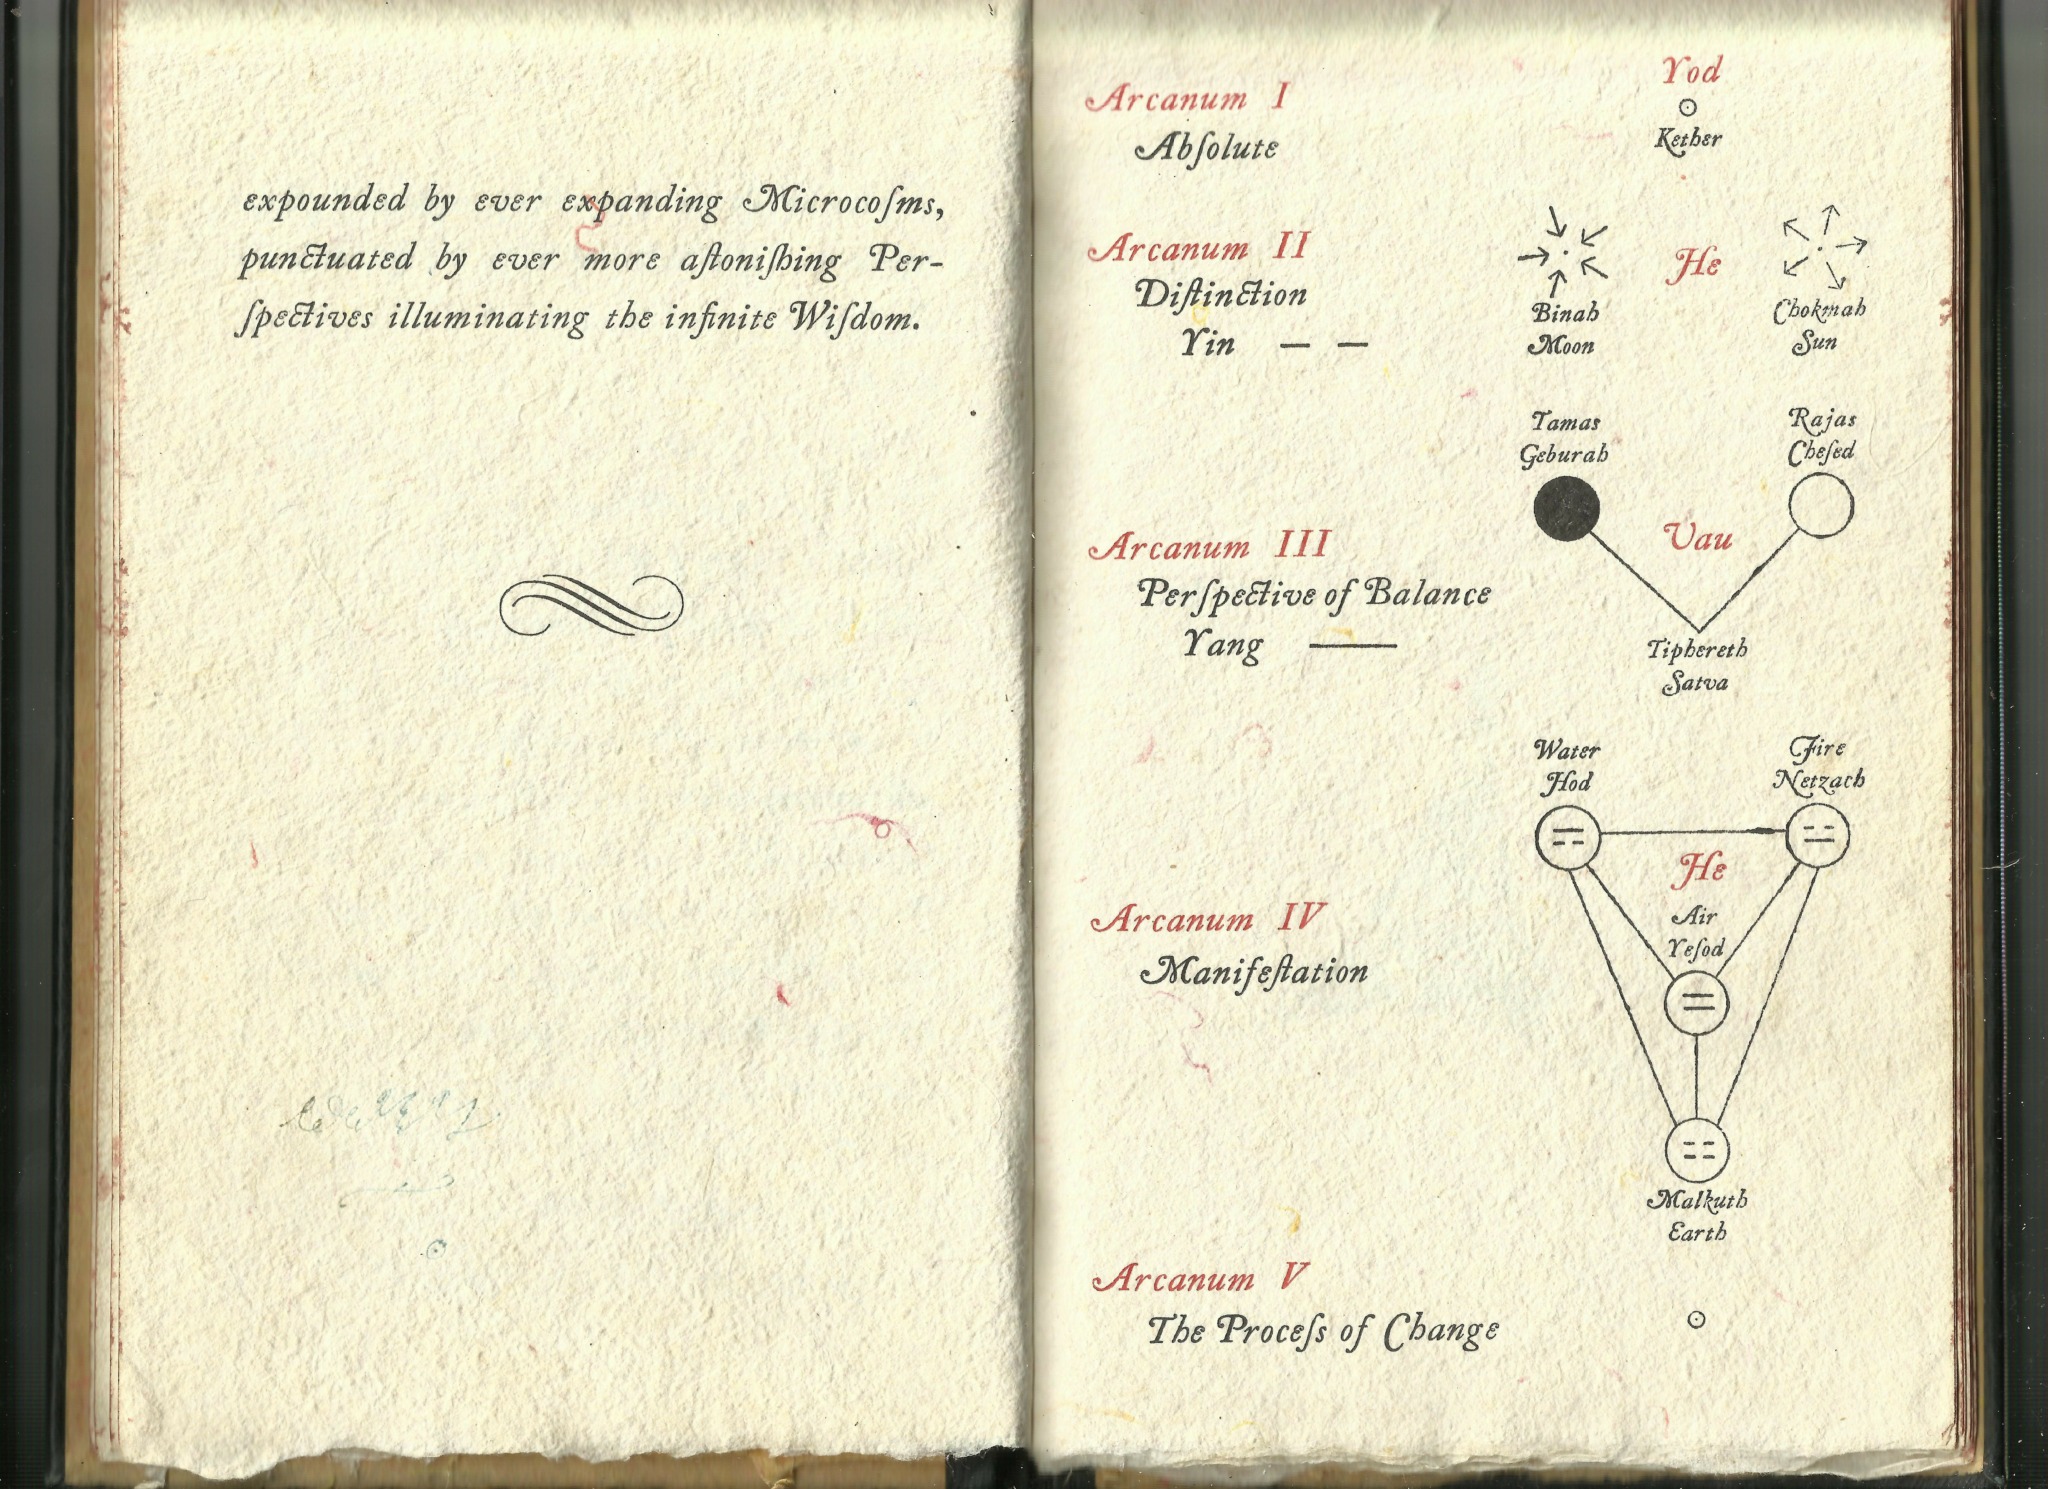 expounded by ever expanding Microcoſms,
punctuated by ever more aſtoniſhing Per-
ſpectives illuminating the infinite Wiſdom.
Arcanum I
Abſolute
Yod
Kether
Arcanum II
Diſtinction
Yin
Binah
Moon
He
Chokmah
Sun
Arcanum III
Perſpective of Balance
Yang
Tamas
Geburah
Rajas
Cheſed
Vau
Tiphereth
Satva
Arcanum IV
Manifeſtation
Water
Hod
Fire
Netzach
He
Air
Yeſod
Malkuth
Earth
Arcanum V
The Proceſs of Change